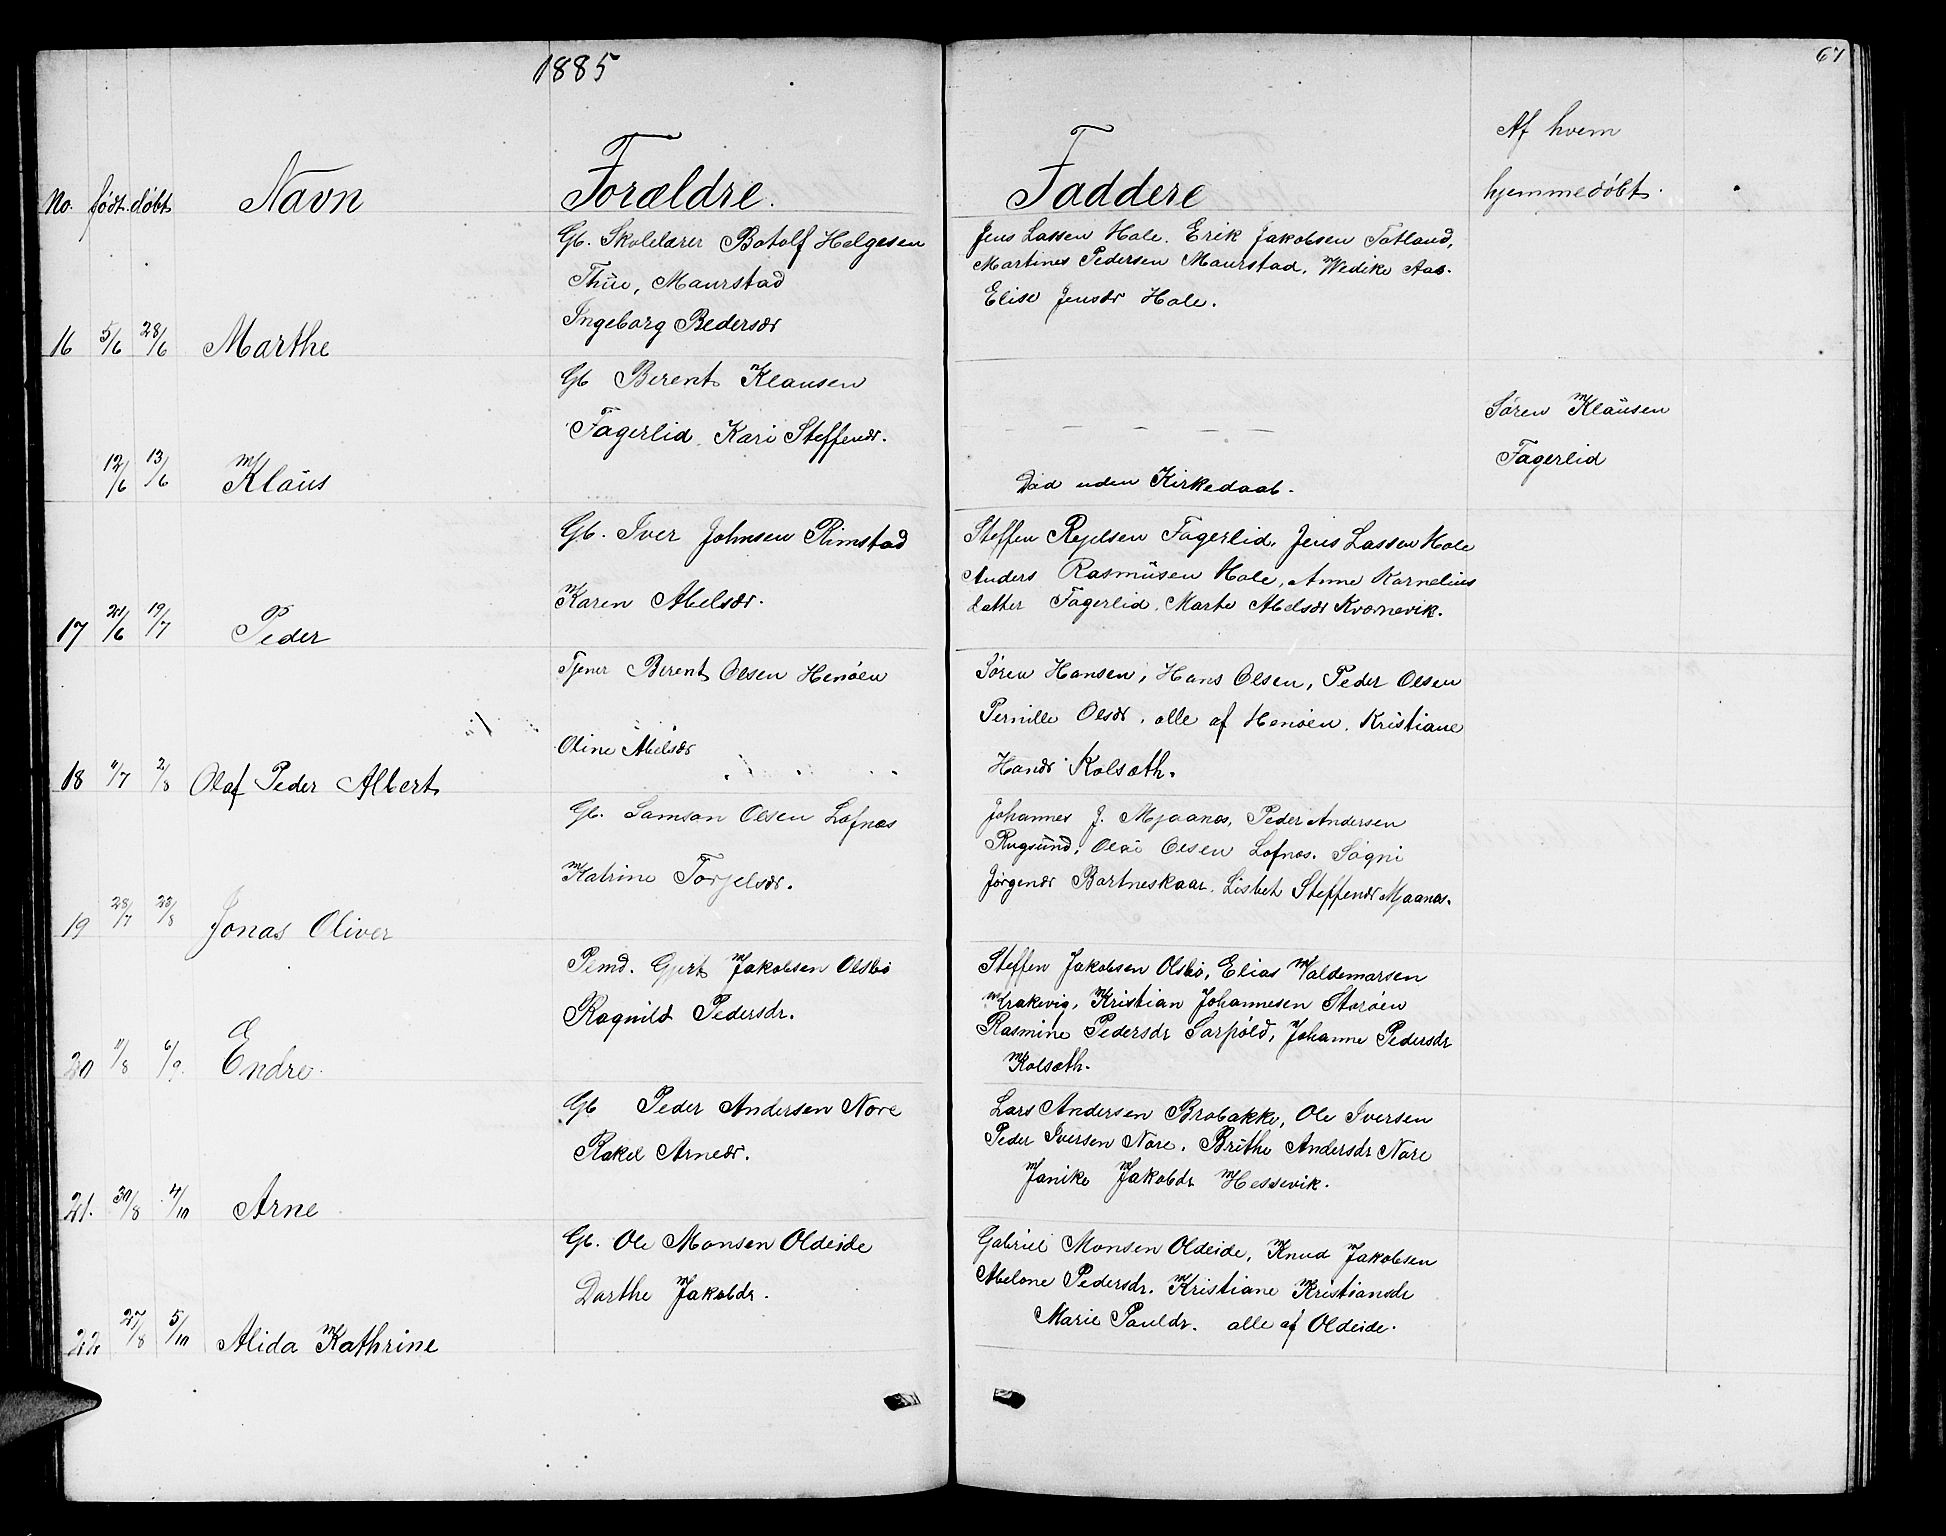 1885
67
No. født. døbt Navn Forældre. Faddere Af hvem
hjemmedøbt.
16 5/6 28/6 Marthe
Gb. Skolelærer Botolf Helgesen
Thüe, Maurstad
Ingeborg Pedersdr
Jens Lassen Hole. Erik Jakobsen Totland,
Martines Pedersen Maurstad, Wedike Aas.
Elise Jensdr Hole.
12/6 13/6 Klaüs
Gb Berent Klausen
Fagerlid Kari Steffendr.
— — — —
Død uden Kirkedaab.
Søren Klaüsen
Fagerlid
17 21/6 19/7 Peder
Gb. Iver Johnsen Rimstad
Karen Abelsdr.
Steffen Rejelsen Fagerlid, Jens Lassen Hole
Anders Rasmüsen Hole, Anne Kornelius
datter Fagerlid. Marte Abelsdr Kvornevik.
18 11/7 2/8 Olaf Peder Albert
Tjener Berent Olsen Henøen
Oline Abelsdr
Søren Hansen, Hans Olsen, Peder Olsen
Pernille Olsdr, alle af Henøen. Kristiane
Hansdr Kolsæth.
19 28/7 23/8 Jonas Oliver
Gb. Samson Olsen Lofnæs
Katrine Torjelsdr.
Johannes J. Mjaanæs, Peder Andersen
Rugsund, Olai Olsen Lofnæs. Søgni
Jørgendr Bortneskaar. Lisbet Steffendr Mjaanæs.
20 11/8 6/9. Endre
Pemd. Gjert Jakobsen Olsbø
Ragnild Pedersdr.
Steffen Jakobsen Olsbø, Elias Waldemarsen
Krakevig, Kristian Johannesen Storøen
Rasmine Pedersdr Sørpold, Johanne Pedersdr
Kolsæth.
21. 30/8 4/10 Arne
Gb Peder Andersen Nore
Rakel Arnedr.
Lars Andersen Brobakke, Ole Iversen
Peder Iversen Nore. Brithe Andersdr Nore
Janike Jakobdr Hessevik.
22 27/8 5/10 Alida Kathrine
Gb. Ole Monsen Oldeide
Dorthe Jakobdr.
Gabriel Monsen Oldeide, Knud Jakobsen
Abelone Pedersdr. Kristiane Kristiansdr
Marie Pauldr. alle af Oldeide.